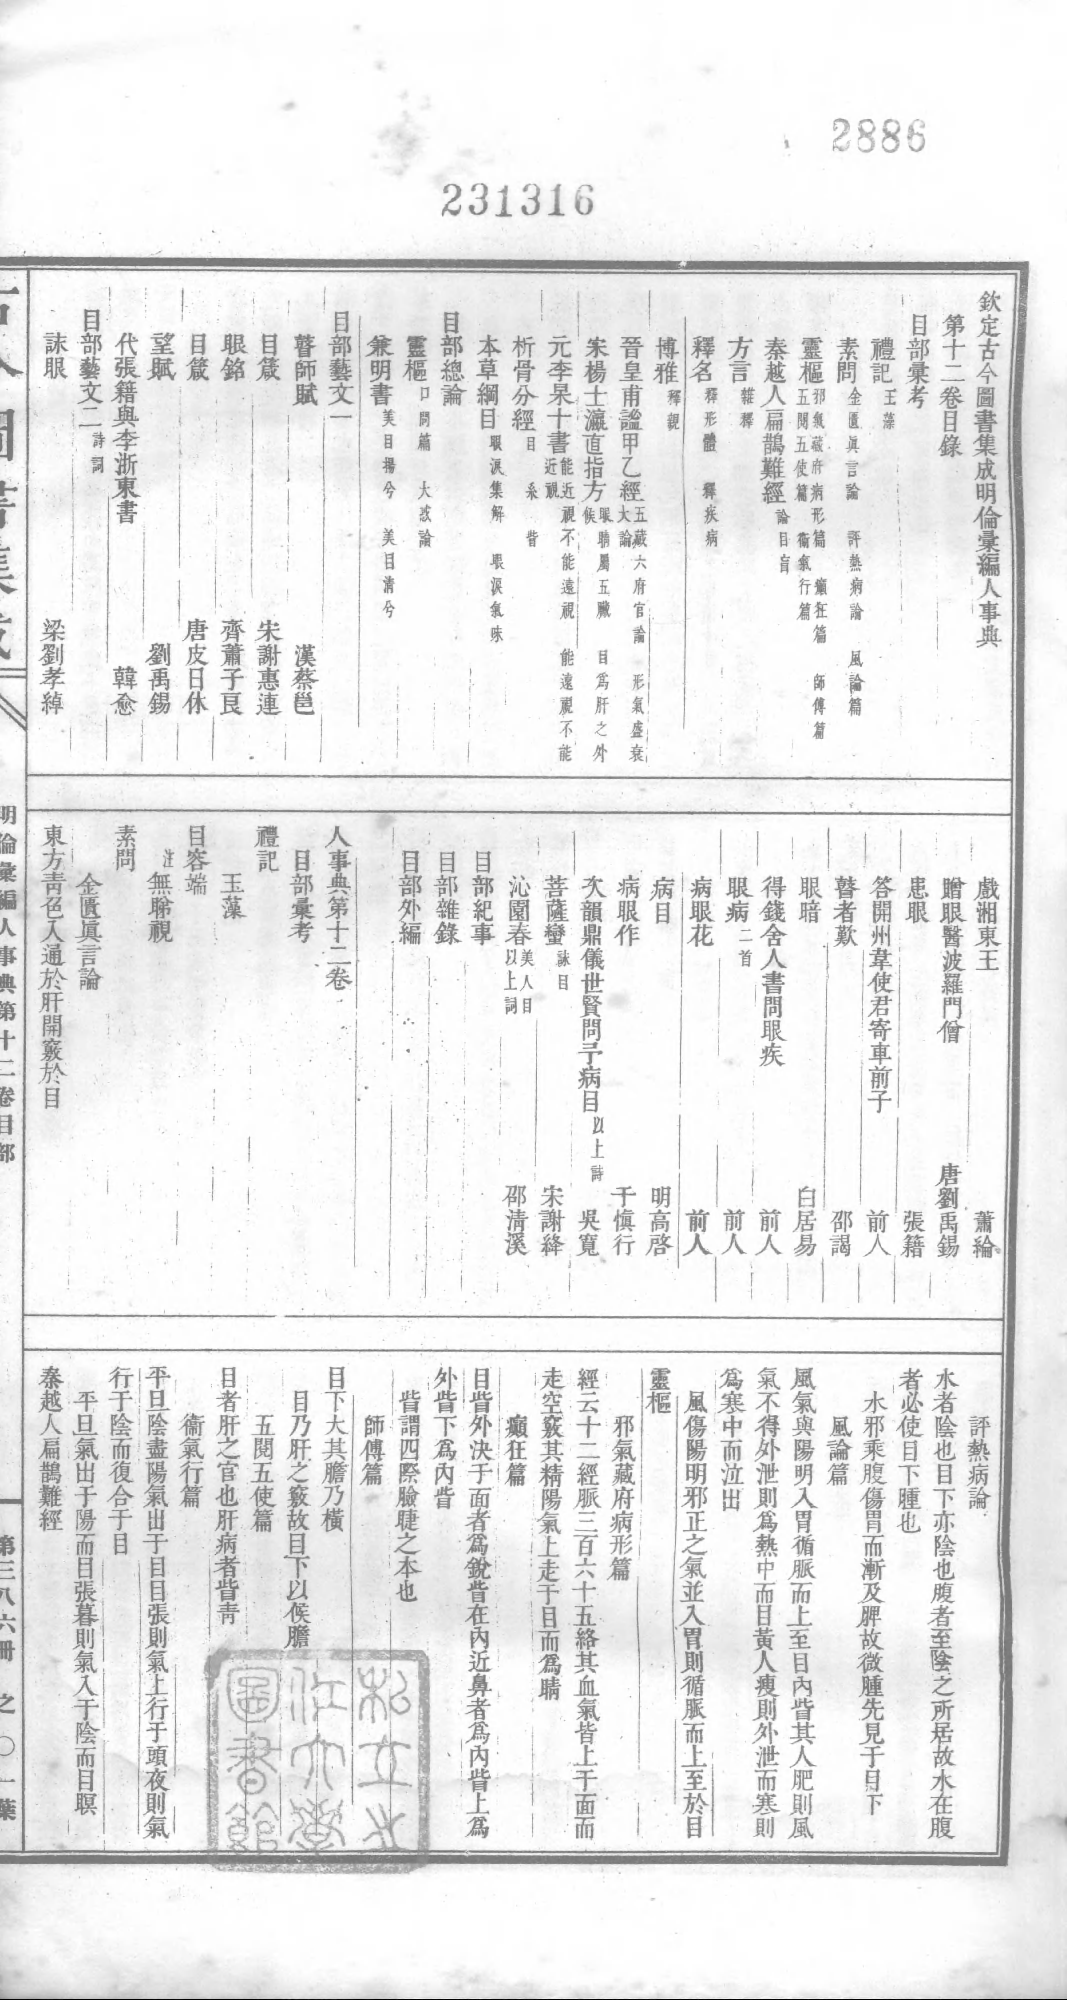 2886
231316
欽定古今圖書集成明倫彙編人事典
第十二卷目錄
目部彙考
禮記 玉藻
素問 金匱眞言論 評熱病論 風論篇
靈樞 邪氣藏府病形篇 癲狂篇 師傳篇 五閱五使篇 衞氣行篇
秦越人扁鵲難經 論目盲
方言 雜釋
釋名 釋形體 釋疾病
博雅 釋親
晉皇甫謐甲乙經 五藏六府官論 形氣盛衰大論
宋楊士瀛直指方 眼睛屬五臟 目爲肝之外候
元李杲十書 能近視不能遠視 能遠視不能近視
析骨分經 目 系 眥
本草綱目 眼淚集解 眼淚氣味
目部總論
靈樞 口問篇 大惑論
兼明書 美目揚兮 美目清兮
目部藝文一
瞽師賦 漢蔡邕
目箴 宋謝惠連
眼銘 齊蕭子良
目箴 唐皮日休
望賦 劉禹錫
代張籍與李浙東書 韓愈
目部藝文二 詩詞
詠眼 梁劉孝綽
戲湘東王 蕭綸
贈眼醫波羅門僧 唐劉禹錫
患眼 張籍
答開州韋使君寄車前子 前人
瞽者歎 邵謁
眼暗 白居易
得錢舍人書問眼疾 前人
眼病二首 前人
病眼花 前人
病目 明高啓
病眼作 于愼行
次韻鼎儀世賢問予病目 以上詩 吳寬
菩薩蠻 詠目 宋謝絳
沁園春 美人目 以上詞 邵清溪
目部紀事
目部雜錄
目部外編
人事典第十二卷
目部彙考
禮記
玉藻
目容端
注 無睇視
素問
金匱眞言論
東方靑色入通於肝開竅於目
評熱病論
水者陰也目下亦陰也腹者至陰之所居故水在腹
者必使目下腫也
水邪乘腹傷胃而漸及脾故微腫先見于目下
風論篇
風氣與陽明入胃循脈而上至目內眥其人肥則風
氣不得外泄則爲熱中而目黃人瘦則外泄而寒則
爲寒中而泣出
風傷陽明邪正之氣並入胃則循脈而上至於目
靈樞
邪氣藏府病形篇
經云十二經脈三百六十五絡其血氣皆上于面而
走空竅其精陽氣上走于目而爲睛
癲狂篇
目眥外決于面者爲銳眥在內近鼻者爲內眥上爲
外眥下爲內眥
眥謂四際臉睫之本也
師傳篇
目下大其膽乃橫
目乃肝之竅故目下以候膽
五閱五使篇
目者肝之官也肝病者眥靑
衞氣行篇
平旦陰盡陽氣出于目目張則氣上行于頭夜則氣
行于陰而復合于目
平旦氣出于陽而目張暮則氣入于陰而目瞑
秦越人扁鵲難經
古今圖書集成
明倫彙編人事典第十二卷目部
第三八六冊 之〇一葉